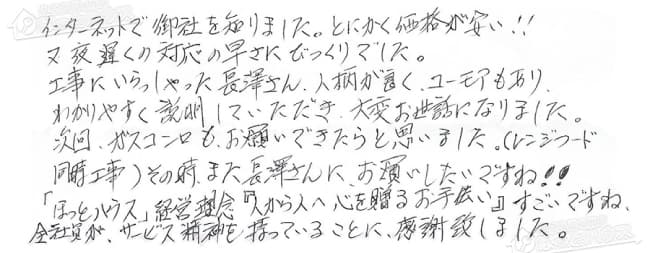 インターネットで御社を知りました。とにかく価格が安い!!
又夜遅くの対応の早さにびっくりでした。
工事にいらっしゃった長澤さん、人柄が良く、ユーモアもあり、
わかりやすく説明していただき、大変お世話になりました。
次回、ガスコンロもお願いできたらと思いました。(レンジフード
同時工事)その時、また長澤さんに、お願いしたいですね!!
「ほっとハウス」経営理念『人から人へ心を贈るお手伝い』すごいですね、
全社員が、サービス精神を持っていることに、感謝致しました。